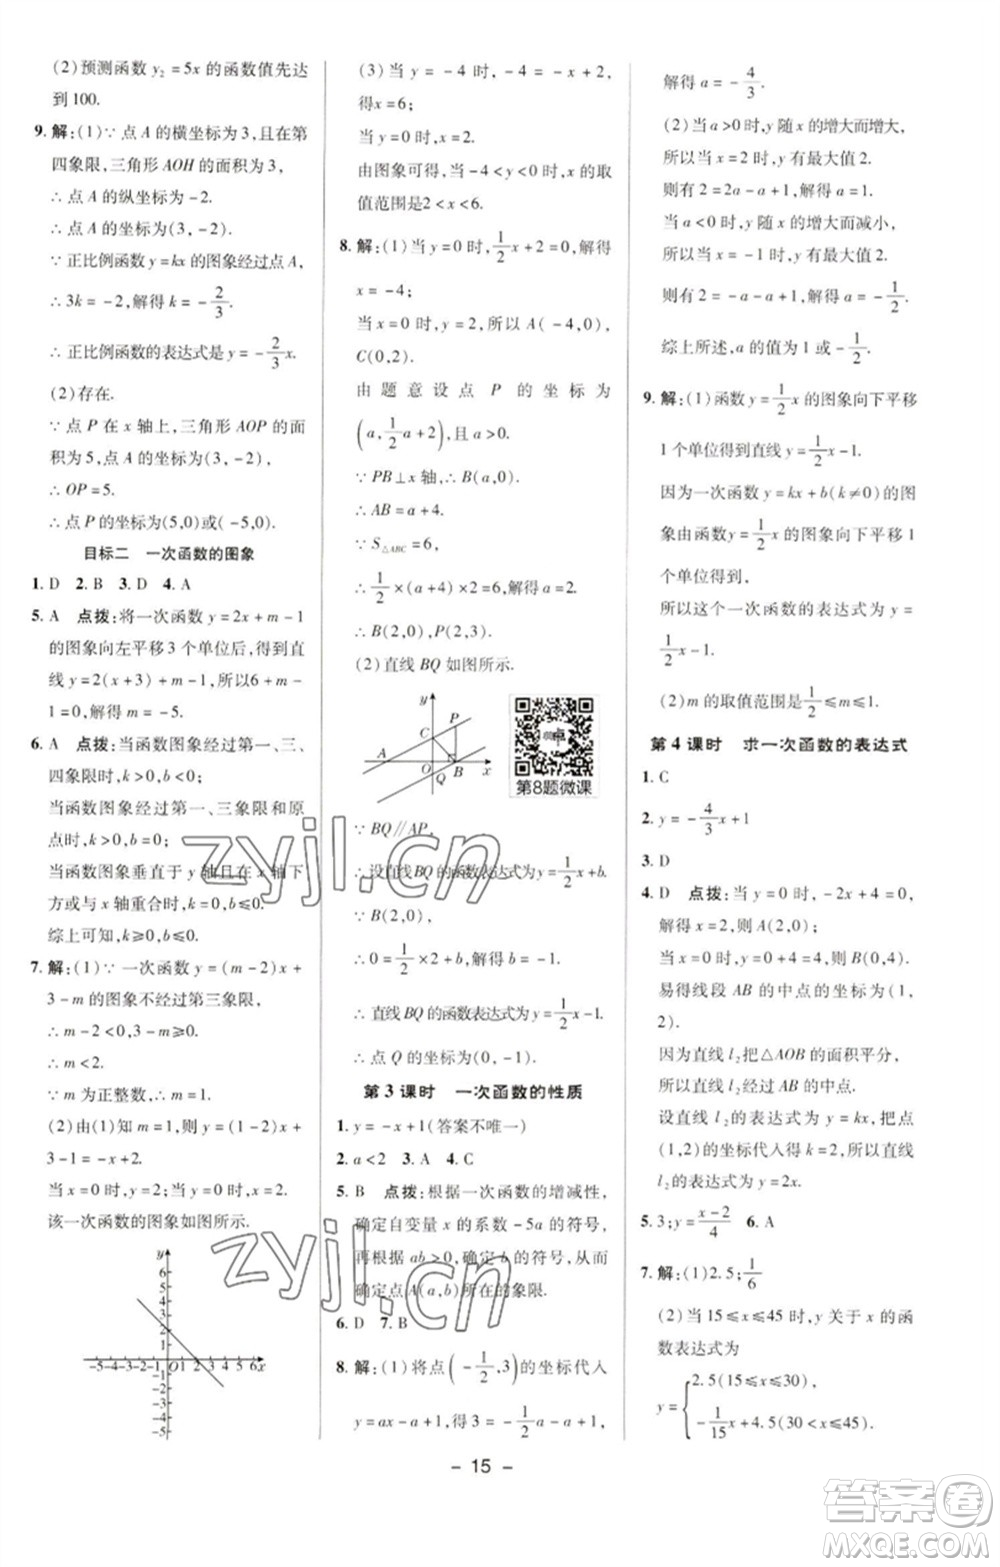 (2)预测函数 y₂=5x 的函数值先达
到100.
9. 解:(1)∵点 A 的横坐标为3,且在第
四象限,三角形 AOH 的面积为3,
∴点 A 的纵坐标为-2.
∴点 A 的坐标为(3,-2).
∵正比例函数 y=kx 的图象经过点 A,
∴3k=-2,解得 k=-2/3.
∴正比例函数的表达式是 y=-2/3x.
(2)存在.
∵点 P 在 x 轴上,三角形 AOP 的面
积为5,点 A 的坐标为(3,-2),
∴OP=5.
∴点 P 的坐标为(5,0)或(-5,0).
目标二 一次函数的图象
1. D 2. B 3. D 4. A
5. A 点拨:将一次函数 y=2x+m-1
的图象向左平移3个单位后,得到直
线 y=2(x+3)+m-1,所以6+m-
1=0,解得 m=-5.
6. A 点拨:当函数图象经过第一、三、
四象限时,k>0,b<0;
当函数图象经过第一、三象限和原
点时,k>0,b=0;
当函数图象垂直于 y 轴且在 x 轴下
方或与 x 轴重合时,k=0,b≤0.
综上可知,k≥0,b≤0.
7. 解:(1)∵一次函数 y=(m-2)x+
3-m 的图象不经过第三象限,
∴m-2<0,3-m≥0.
∴m<2.
∵m 为正整数,∴m=1.
(2)由(1)知 m=1,则 y=(1-2)x+
3-1=-x+2.
当 x=0 时,y=2;当 y=0 时,x=2.
该一次函数的图象如图所示.
y
6
5
4
3
2
1
-5-4-3-2-1 O 1 2 3 4 5 6 x
-1
-2
-3
-4
-5
(3)当 y=-4 时,-4=-x+2,
得 x=6;
当 y=0 时,x=2.
由图象可得,当-4<y<0 时,x 的取
值范围是2<x<6.
8. 解:(1)当 y=0 时,1/2x+2=0,解得
x=-4;
当 x=0 时,y=2,所以 A(-4,0),
C(0,2).
由题意设点 P 的坐标为
(a,1/2a+2),且 a>0.
∵PB⊥x 轴,∴B(a,0).
∴AB=a+4.
∵S△ABC=6,
∴1/2×(a+4)×2=6,解得 a=2.
∴B(2,0),P(2,3).
(2)直线 BQ 如图所示.
y
P
C
A O B x
Q
第8题微课
∵BQ∥AP,
∴设直线 BQ 的函数表达式为 y=1/2x+b.
∵B(2,0),
∴0=1/2×2+b,解得 b=-1.
∴直线 BQ 的函数表达式为 y=1/2x-1.
∴点 Q 的坐标为(0,-1).
第3课时 一次函数的性质
1. y=-x+1(答案不唯一)
2. a<2 3. A 4. C
5. B 点拨:根据一次函数的增减性,
确定自变量 x 的系数-5a 的符号,
再根据 ab>0,确定 b 的符号,从而
确定点 A(a,b)所在的象限.
6. D 7. B
8. 解:(1)将点(-1/2,3)的坐标代入
y=ax-a+1,得 3=-1/2a-a+1,
解得 a=-4/3.
(2)当 a>0 时,y 随 x 的增大而增大,
所以当 x=2 时,y 有最大值2.
则2=2a-a+1,解得 a=1.
当 a<0 时,y 随 x 的增大而减小,
所以当 x=-1 时,y 有最大值2.
则2=-a-a+1,解得 a=-1/2.
综上所述,a 的值为1或-1/2.
9. 解:(1)函数 y=1/2x 的图象向下平移
1个单位得到直线 y=1/2x-1.
因为一次函数 y=kx+b(k≠0)的图
象由函数 y=1/2x 的图象向下平移1个
单位得到,
所以这个一次函数的表达式为 y=
1/2x-1.
(2)m 的取值范围是1/2≤m≤1.
第4课时 求一次函数的表达式
1. C
2. y=-4/3x+1
3. D
4. D 点拨:当 y=0 时,-2x+4=0,
解得 x=2,则 A(2,0);
当 x=0 时,y=0+4=4,则 B(0,4).
易得线段 AB 的中点的坐标为(1,
2).
因为直线 l₂把△AOB 的面积平分,
所以直线 l₂经过 AB 的中点.
设直线 l₂的表达式为 y=kx,把点
(1,2)的坐标代入得 k=2,所以直线
l₂的表达式为 y=2x.
5. 3;y=(x-2)/4 6. A
7. 解:(1)2.5;1/6
(2)当15≤x≤45 时,y 关于 x 的函
数表达式为
y={2.5(15≤x≤30),
-1/15x+4.5(30<x≤45).
- 15 -
zyjl.cn
zyjl.cn
答案圈
MXQE.COM